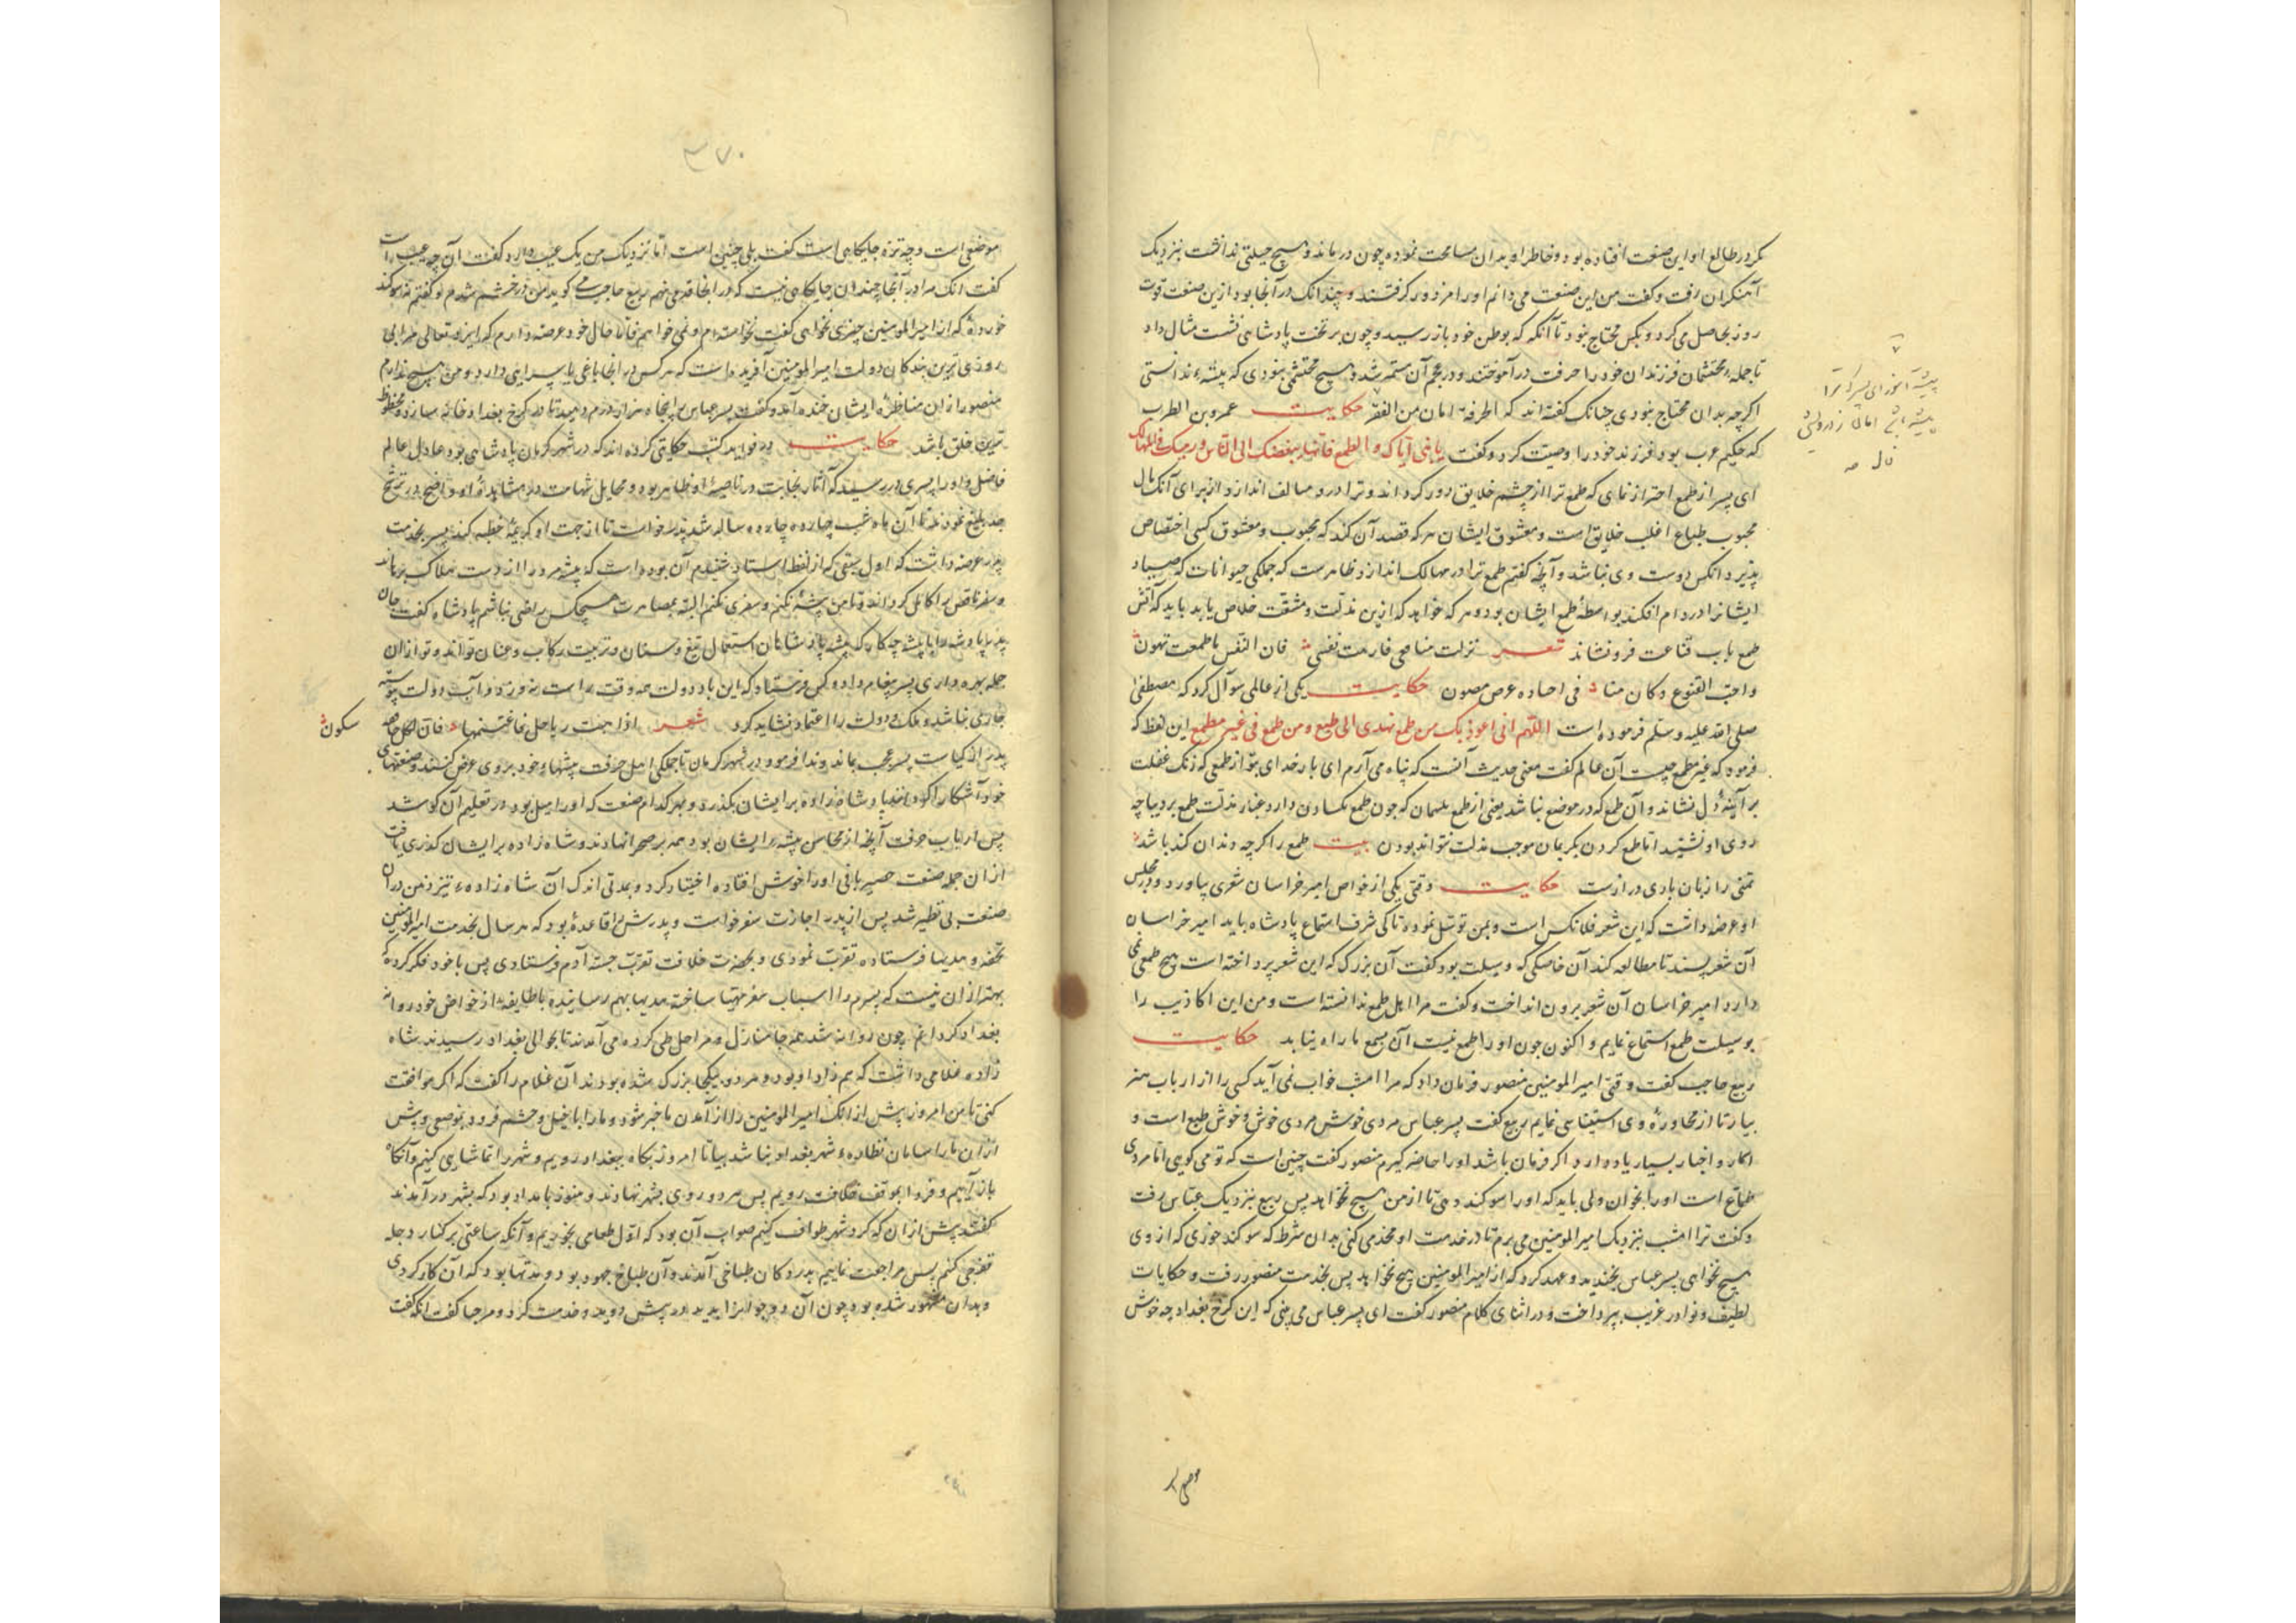 مگر در طالع او این صنعت افتاده بود و خاطر او بدان مسامحت نموده چون درماند و هیچ حیلتی ندانست بنزدیک
آهنگران رفت و گفت من این صنعت می‌دانم او را مزدور گرفتند و چندانک در آنجا بود ازین صنعت قوت
روز بحاصل می‌کرد و بکس محتاج نبود تا آنگه که بوطن خود باز رسید و چون بر تخت پادشاهی نشست مثال داد
تا جمله محتشمان فرزندان خود را حرفت در آموختند و در عجم آن مستمر شد و هیچ محتشمی نبودی که پیشه‌ء ندانستی
اگرچه بدان محتاج نبودی چنانک گفته‌اند که الحرفة امان من الفقر حکایت عمرو بن الطرب
که حکیم عرب بود فرزند خود را وصیت کرد و گفت یا بنی ایاک و الطمع فانها یبغضک الی الناس و یرمیک فی المهالک
ای پسر از طمع احتراز نمای که طمع ترا از چشم خلایق دور گرداند و ترا در و مسالف اندازد از برای آنک مال
محبوب طباع اغلب خلایق است و معشوق ایشان هر که قصد آن کند که محبوب و معشوق کسی اختصاص
پذیرد آنکس دوست وی نباشد و آنچه گفتم طمع ترا در مهالک اندازد ظاهرست که جملگی حیوانات که صیاد
ایشانرا در دام افکند بواسطهٔ طمع ایشان بود و هر که خواهد که ازین مذلت و مشقت خلاص یابد باید که آتش
طمع بآب قناعت فرو نشاند شعر نزلت منافعی فارحت نفسی فان النفس ما طمعت تهون
واحب القنوع و کان متا فی احیاه عرض مصون حکایت یکی از عالمی سوآل کرد که مصطفی
صلی الله علیه و سلم فرموده است اللهم انی اعوذ بک من طمع یهدی الی طبع و من طمع فی غیر مطمع این لفظ که
فرمود که غیر مطمع چیست آن عالم گفت معنی حدیث آنست که پناه می‌آرم ای بار خدای بتو از طمعی که زنک غفلت
بر آینهٔ دل نشاند و آن طمع که در موضع نباشد یعنی از طمع لئیمان که چون طمع یکسان دارد غبار مذلت طمع بر دیباچه
روی او نشیند اما طمع کردن بکریمان موجب مذلت نتواند بودن بیت طمع را گرچه دندان کند باشد
تمنی را زبان باری درازست حکایت وقتی یکی از خواص امیر خراسان شعری بیاورد و در مجلس
او عرضه داشت که این شعر فلانکس است و بمن توسل نموده تا کی شرف استماع پادشاه یابد امیر خراسان
آن شعر بستد تا مطالعه کند آن خاصگی که وسیلت بود گفت آن بزرک که این شعر پرداخته است هیچ طمعی نمی
دارد امیر خراسان آن شعر برون انداخت و گفت مرا اهل طمع ندانسته است و من این اکاذیب را
بوسیلت طمع استماع نمایم و اکنون چون او را طمع نیست آن بسمع ما راه نیابد حکایت
ربیع حاجب گفت وقتی امیر المومنین منصور فرمان داد که مرا امشب خواب نمی‌آید کسی را از ارباب هنر
بیار تا از محاورهٔ وی استیناسی نمایم ربیع گفت پسر عباس مردی خوش مردی خوش و خوش طبع است و
اسمار و اخبار بسیار یاد دارد اگر فرمان باشد او را حاضر گیرم منصور گفت چنین است که تو می‌گویی اما مردی
طماع است او را بخوان ولی باید که او را سوگند دهی تا از من هیچ نخواهد پس ربیع نزدیک عباس رفت
و گفت ترا امشب بنزدیک امیر المومنین می‌برم تا در خدمت او محذمی کنی بدان شرط که سوگند خوری که از وی
هیچ نخواهی پسر عباس بخندید و عهد کرد که از امیر المومنین هیچ نخواهد پس بخدمت منصور رفت و حکایات
لطیف و نوادر غریب بپرداخت و در اثنای کلام منصور گفت ای پسر عباس می‌بینی که این کرخ بغداد چه خوش
پیشه آموز ای پسر که ترا
پیشه باشد امان ز درویشی
موضعی
۳۷۰
موضعی است و چه نزه جایگاهی است گفت بلی چنین است اما نزدیک من یک عیب دارد گفت آن چه عیب است
گفت انک مرا در آنجا چندان جایگاهی نیست که در انجا قدمی نهم ربیع حاجب می گوید من در خشم شدم و گفتم نه سوگند
خوردهٔ که از امیر المومنین چیزی نخواهی گفت نخواسته‌ام و نمی‌خواهم فاما حال خود عرضه دارم که ایزد تعالی مرا بی
روزی ترین بندگان دولت امیر المومنین آفریده است که هر کس در انجا باغی یا سرایی دارد و من هیچ ندارم
منصور از ان مناظرهٔ ایشان خنده آمد و گفت پسر عباس را پنجاه هزار درم دهید تا در کرخ بغداد خانه سازد و محظوظ
ترین خلق باشد حکایت در فواید کتب حکایتی کرده‌اند که در شهر کرمان پادشاهی بود عادل عالم
فاضل و او را پسری در رسید که آثار نجابت در ناصیهٔ او ظاهر بود و مخایل شهامت در مشاهدهٔ او واضح در ترشیح
جد بلیغ نمودند تا آن ماه شب چهارده چارده ساله شد پدر خواست تا از جهت او کریمهٔ خطبه کند پسر بخدمت
پدر عرضه داشت که اول سبقی که از لفظ استاد شنیدم آن بوده است که پیشه مرد را از دست هلاک برهاند
و سفر ناقص را کامل گرداند تا من پیشه نکنم و سفری نکنم البته بمصاهرت هیچکس راضی نباشم پادشاه گفت جان
پدر پادشه را با پیشه چه کار که پیشه پادشاهان استعمال تیغ و سنان و تربیت رکاب و عنان تواند و تو از ان
جمله بهره داری پسر پیغام داد و کس فرستاد که این باد دولت همه وقت راست نه وزد و آب دولت پیوسته
جاری نباشد و ملک و دولت را اعتماد نشاید کرد شعر اذا هبت ریاحک فاغتنمها فان لکل خافقة
سکون
پدر از کیاست پسر عجب بماند و ندا فرمود در شهر کرمان تا جملگی اهل حرفت پیشهاء خود بر وی عرض کنند و صنعتهای
خود آشکارا کردند و پادشاه زاده بر ایشان بگذرد و بهر کدام صنعت که او را میل بود در تعلیم آن کوشد
پس ارباب حرفت آنچه از محاسن پیشه ایشان بود همه بر صحرا نهادند و شاه زاده بر ایشان گذری یافت
از ان جمله صنعت حصیر بافی او را خوش افتاده اختیار کرد و بمدتی اندک آن شاه زاده‌ء تیز ذهن در آن
صنعت بی نظیر شد پس از پدر اجازت سفر خواست و پدرش را قاعدهٔ بود که هر سال بخدمت امیر المومنین
تحفه و هدیها فرستاده تقرب نمودی و بحضرت خلافت تقرب جسته آدم فرستادی پس با خود فکر کرد که
بهتر از ان نیست که پسرم را اسباب سفر مهیا ساخته هدیها بهم رسانیده با طایفه از خواص خود روانهٔ
بغداد گردانم چون روانه شد همه جا منازل و مراحل طی کرده می‌آمدند تا بحوالی بغداد رسیدند شاه
زاده غلامی داشت که همزاد او بود و هر دو یکجا بزرک شده بودند آن غلام را گفت که اگر موافقت
کنی تا من امروز پیش از انک امیر المومنین را از آمدن ما خبر شود و ما را با خیل و حشم فرود بموضعی و پیش
از ان ما را سامان نظاره‌ء شهر بغداد نباشد بیا تا امروز پگاه ببغداد رویم و شهر را تماشایی کنیم و آنگاه
باز آییم و فردا بموقف خلافت رویم پس هر دو روی بشهر نهادند و هنوز بامداد بود که بشهر در آمدند
گفت پیش از ان که گرد شهر طواف کنیم صواب آن بود که اول طعامی بخوریم و آنگه ساعتی بر کنار دجله
تفرجی کنیم پس مراجعت نماییم بدر دکان طباخی آمدند و آن طباخ جهود بود و مدتها بود که آن کار کردی
و بدان مشهور شده بود چون آن دو جوانرا بدید در پیش دوید و خدمت کرد و مرحبا گفت انگه گفت